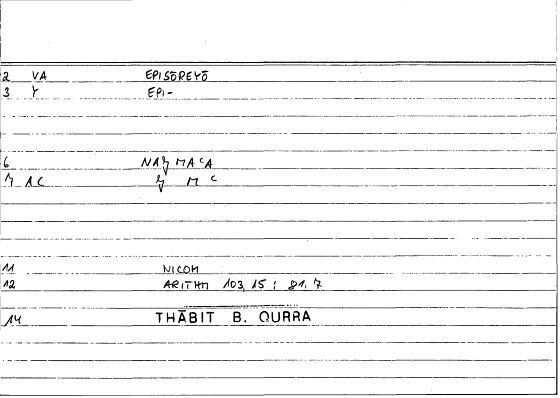 2 VA EPISŌREYŌ
3 Y EPI-
6 MACA
AC M C
11 NICOM
12 ARITHM 103,15; 81,7
14 THĀBIT B. QURRA